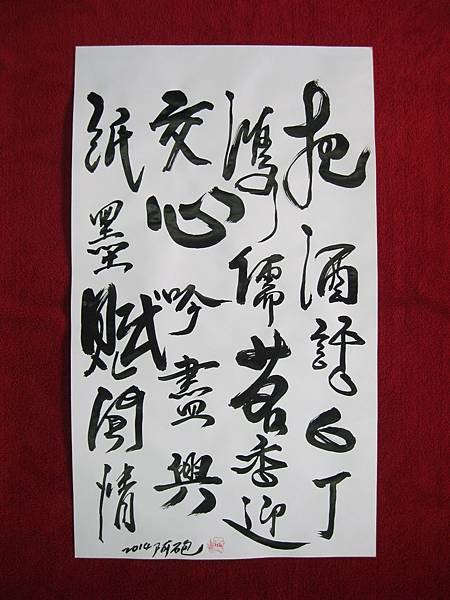 把酒白丁
鴻儒茗香迎
交心吟盡興
紙墨賦情
2014 阿砲